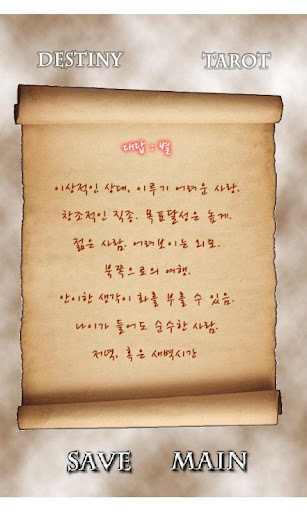 DESTINY TAROT
대답 : 별
이상적인 상대, 이루기 어려운 사랑.
창조적인 직종. 목표달성은 높게.
젊은 사람. 어려보이는 외모.
북쪽으로의 여행.
안이한 생각이 화를 부를 수 있음.
나이가 들어도 순수한 사람.
저녁, 혹은 새벽시간
SAVE MAIN